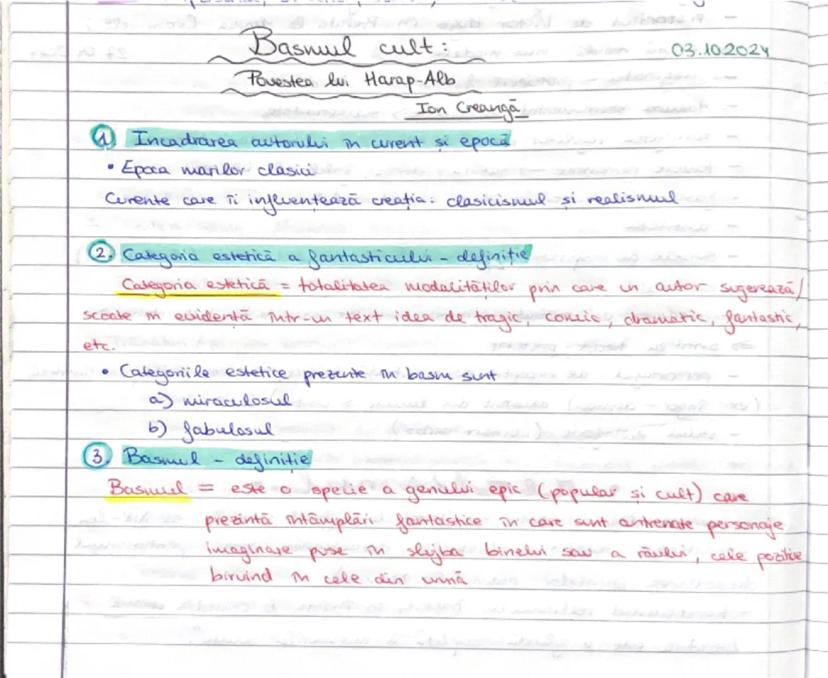 Basmul cult:
03.10.2024
Povestea lui Harap-Alb
Ion Creangă
1 Incadrarea autorului în curent și epocă
• Epoca marilor clasici
Curente care îi influențează creația: clasicismul și realismul
2. Categoria estetică a fantasticului - definiție
Categoria estetică = totalitatea modalităților prin care un autor sugerează/
scoate în evidență într-un text idea de tragic, comic, dramatic, fantastic,
etc.
• Categoriile estetice prezente în basm sunt
a) miraculosul
b) fabulosul
3. Basmul - definiție
Basmul = este o specie a genului epic (popular și cult) care
prezintă întâmplări fantastice în care sunt antrenate personaje
imaginare puse în slujba binelui sau a răului, cele pozitive
biruind în cele din urmă